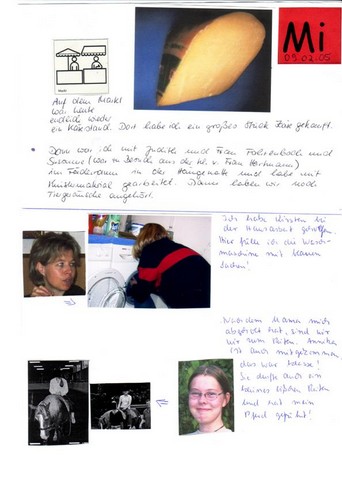 Mi
09.02.05
Markt
Auf dem Markt
war heute
endlich wieder
ein Käsestand. Dort habe ich ein großes Stück Käse gekauft.
* Dann war ich mit Judith und Frau Fahrenbach und
Susanne (war zu Besuch aus der Kl. v. Frau Hartmann)
im Förderraum in der Hängematte und habe mit
gearbeitet. Dann haben wir noch
angehört.
Ich habe Kirsten bei
der Hausarbeit getroffen.
Hier fülle ich die Wasch-
maschine mit blauen
Sachen!
Nachdem Mama mich
abgeholt hat, sind wir
zum Reiten. Annika
ist auch mitgekommen,
das war klasse!
Sie durfte auch ein
kleines bißchen Reiten
und hat mein
Pferd geführt!